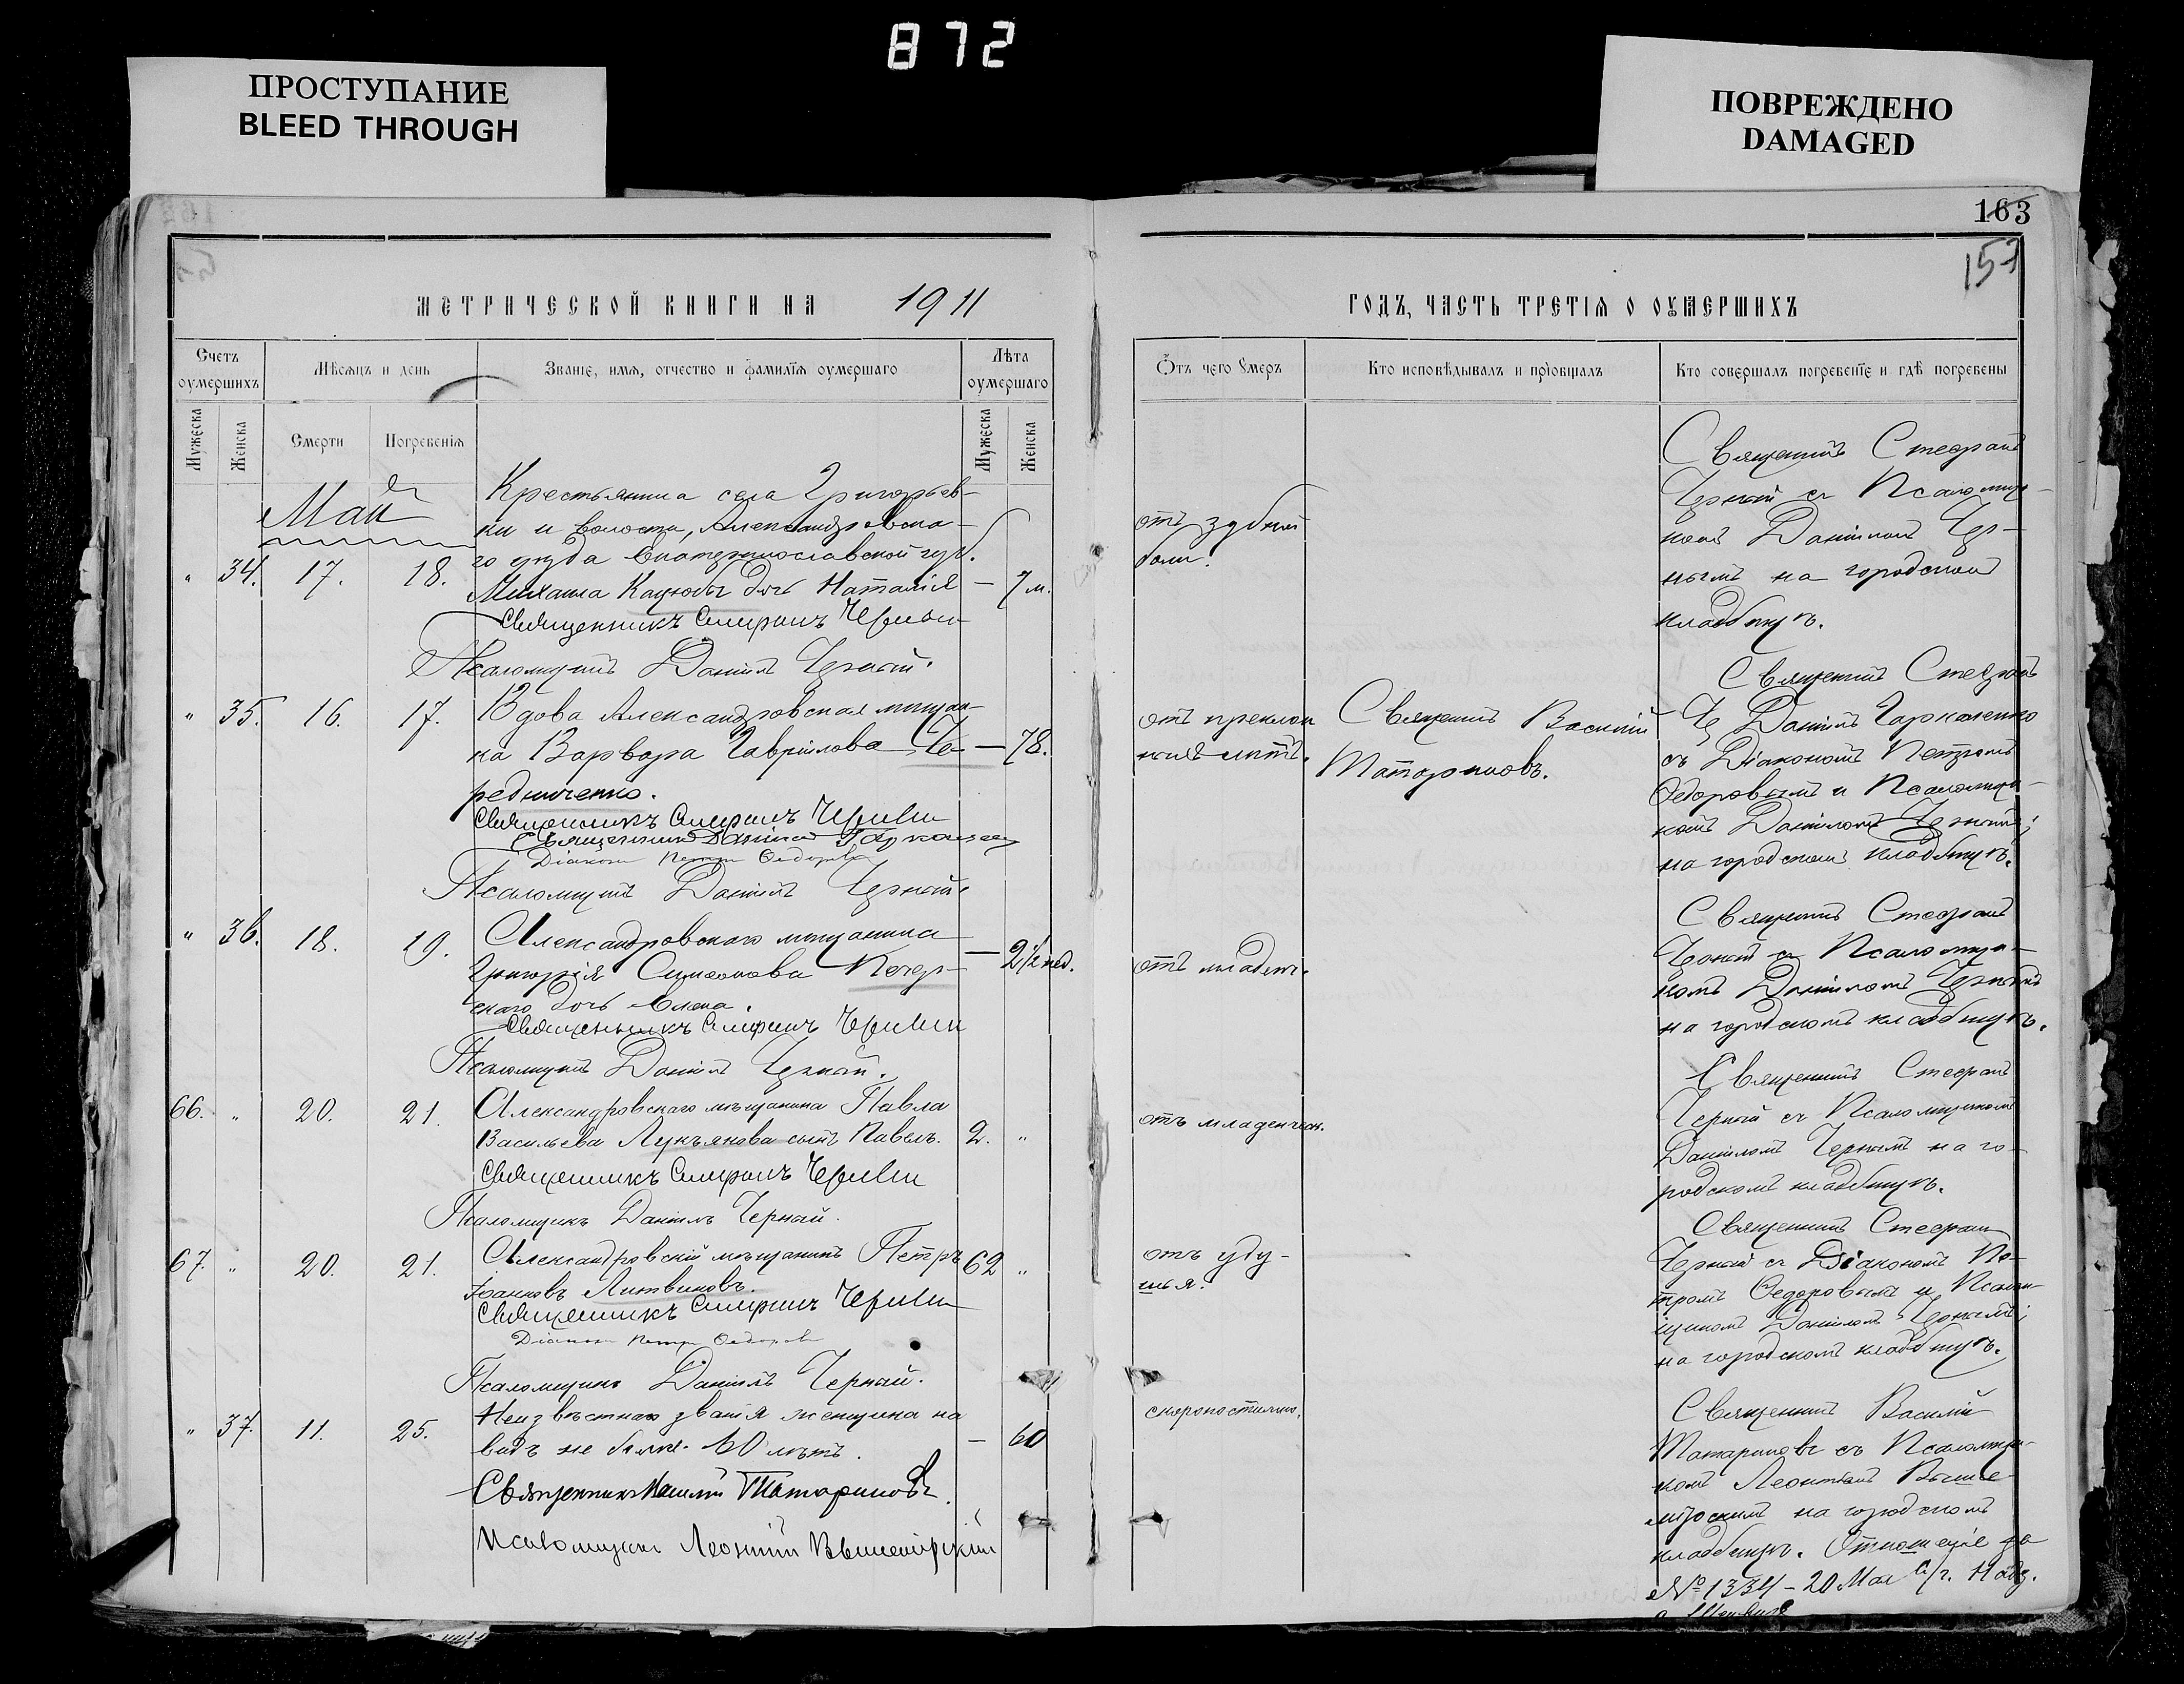 872
ПРОСТУПАНИЕ
BLEED THROUGH
ПОВРЕЖДЕНО
DAMAGED
163
157
МЕТРИЧЕСКОЙ КНИГИ НА 1911
ГОДЪ, ЧАСТЬ ТРЕТІЯ О ОУМЕРШИХЪ
Счетъ оумершихъ
Мѣсяцъ и день
Званіе, имя, отчество и фамилія оумершаго
Лѣта оумершаго
Мужеска
Женска
Смерти
Погребенія
Мужеска
Женска
Отъ чего умеръ
Кто исповѣдывалъ и пріобщалъ
Кто совершалъ погребеніе и гдѣ погребены
Май
Крестьянина села Григорьев-
ки и волости, Александровска-
го уѣзда Екатеринославской губ.
" 34. 17. 18. Михаила дочь Наталія — 7 м.
Священникъ Стефанъ Черный
Псаломщикъ Даніилъ Черный.
отъ зубной
боли.
Священникъ Стефанъ
Черный съ Псаломщи-
комъ Даніиломъ Чер-
нымъ на городскомъ
кладбищѣ.
" 35. 16. 17. Вдова Александровская мѣщан-
ка Варвара Гаврілова Че- — 78.
редниченко.
Священникъ Стефанъ Черный
Священникъ Даніилъ
Діаконъ Петръ Ѳедоровъ
Псаломщикъ Даніилъ Черный.
отъ преклон
ныхъ лѣтъ.
Священникъ Василій
Татариновъ.
Священникъ Стефанъ
Ч Даніилъ
съ Діакономъ Петромъ
Ѳедоровымъ и Псаломщи-
комъ Даніиломъ Чернымъ;
на городскомъ кладбищѣ.
" 36. 18. 19. Александровскаго мѣщанина
Григорія Симеонова Печер- — 2½ нед.
скаго дочь Елена.
Священникъ Стефанъ Черный
Псаломщикъ Даніилъ Черный.
отъ младенч.
Священникъ Стефанъ
Черный съ Псаломщи-
комъ Даніиломъ Чернымъ
на городскомъ кладбищѣ.
66. " 20. 21. Александровскаго мѣщанина Павла
Васильева Лукьянова сынъ Павелъ. 2. "
Священникъ Стефанъ Черный
Псаломщикъ Даніилъ Черный.
отъ младенческ.
Священникъ Стефанъ
Черный съ Псаломщикомъ
Даніиломъ Чернымъ на го-
родскомъ кладбищѣ.
67. " 20. 21. Александровскій мѣщанинъ Петръ 62 "
Іоанновъ Литвиновъ.
Священникъ Стефанъ Черный
Діаконъ Петръ Ѳедоровъ
Псаломщикъ Даніилъ Черный.
отъ уду-
шья.
Священникъ Стефанъ
Черный съ Діакономъ Пе-
тромъ Ѳедоровымъ и Псалом-
щикомъ Даніиломъ Чернымъ;
на городскомъ кладбищѣ.
" 37. 11. 25. Неизвѣстнаго званія женщина на
видъ не болѣе 60 лѣтъ. — 60
Священникъ Василій Татариновъ.
Псаломщикъ Леонтій Вышемірскій
скоропостижно.
Священникъ Василій
Татариновъ съ Псаломщи-
комъ Леонтіемъ Выше-
мірскимъ на городскомъ
кладбищѣ. Отношеніе за
№ 1334 – 20 Мая с/г.